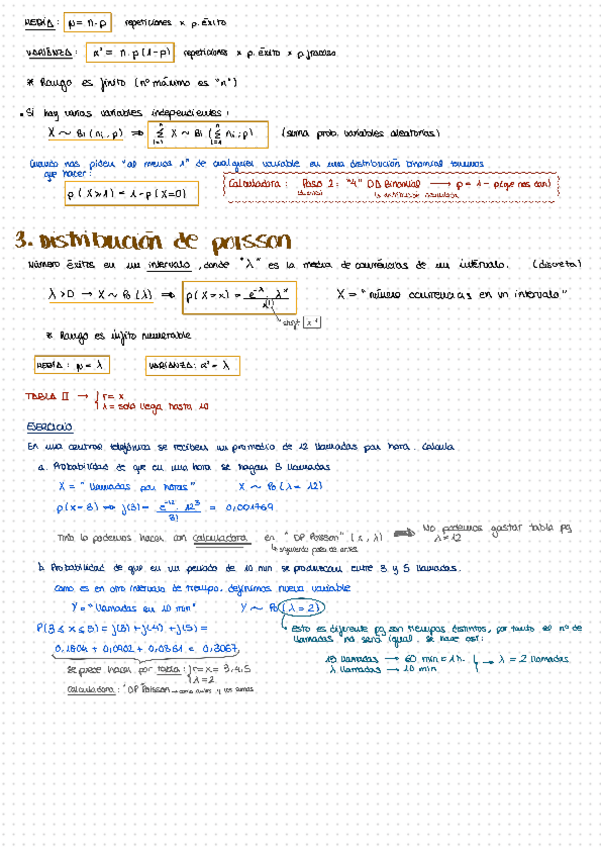 MEDIA: μ = n·p repeticiones x p. éxito
VARIANZA: α² = n·p(1-p) repeticiones x p. éxito x p. fracaso
* Rango es finito (nº máximo es "n")
• Si hay varias variables independientes:
X ~ Bi(ni,p) ⇒ Σ X ~ Bi(Σ ni;p) (suma prob. variables aleatorias)
Cuando nos piden "al menos 1" de cualquier variable en una distribución binomial tenemos
que hacer:
p(X≥1) = 1-p(X=0)
Calculadora: Paso 2: "4" DP Binomial → p = 1 - p(que nos den)
3. Distribución de poisson
Número éxitos en un intervalo, donde "λ" es la media de ocurrencias de un intervalo. (discreta)
λ>0 → X ~ Po(λ) ⇒ p(X=x) = e^-λ · λ^x / x! X = "número ocurrencias en un intervalo"
shift x⁻¹
* Rango es infito numerable
MEDIA: μ = λ VARIANZA: α² = λ
TABLA II → { r = x
λ = solo llega hasta 10
EJERCICIO
En una central telefónica se reciben un promedio de 12 llamadas por hora. Calcula
a. Probabilidad de que en una hora se hagan 3 llamadas
X = "llamadas por horas" X ~ Po(λ = 12)
p(x=3) ⇒ f(3) = e^-12 · 12³ / 3! = 0,001769
Tmb lo podemos hacer con calculadora en "DP Poisson" (x, λ) ⇒ No podemos gastar tabla pq
λ = 12
↳ siguiendo pasos de antes
b. Probabilidad de que en un periodo de 10 min se produzcan entre 3 y 5 llamadas.
Como es en otro intervalo de tiempo, definimos nueva variable
Y = "llamadas en 10 min" Y ~ Po(λ = 2)
P(3 ≤ x ≤ 5) = f(3) + f(4) + f(5) =
↳ esto es diferente pq son tiempos distintos, por tanto el nº de
llamadas no será igual. se hace así:
0,1804 + 0,0902 + 0,0361 = 0,3067
12 llamadas → 60 min = 1h.
λ llamadas → 10 min
→ λ = 2 llamadas
se puede hacer por tabla: { r = x = 3,4,5
λ = 2
Calculadora: "DP Poisson → como antes y los sumas